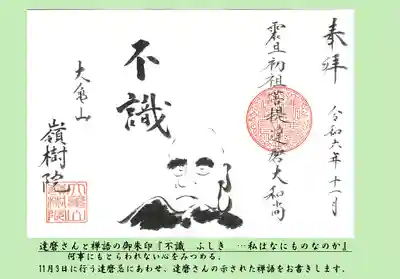 奉拝
令和六年 十一月
震旦初祖菩提達磨大和尚
不識
大亀山
嶺樹院
達磨さんと禅語の御朱印『不識　ふしき　…私はなにものなのか』
何事にもとらわれない心をみつめる。
11月5日に行う達磨忌にあわせ、達磨さんの示された禅語をお書きします。